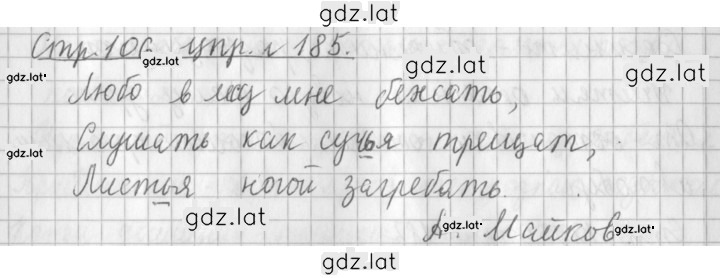 gdz.lat
Стр. 106 упр. № 185.
gdz.lat
gdz.lat gdz.lat gdz.lat
Любо в лесу мне бежать,
Слушать как сучья трещат,
gdz.lat
Листья ногой загребать.
gdz.lat
А. Майков gdz.lat
gdz.lat